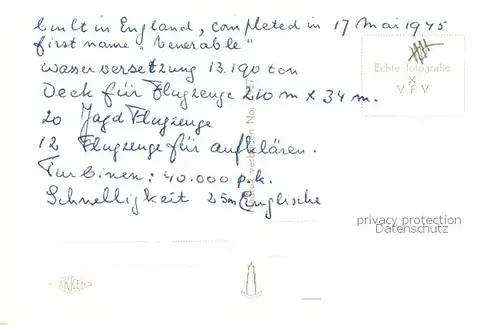 built in England, completed in 17 Mai 1945
first name "Venerable"
Wasserversetzung 13.190 ton
Deck für Flugzeuge 210 m x 34 m.
20 Jagd Flugzeuge
12 Flugzeuge für aufklären.
Turbinen: 40.000 p.k.
Schnelligkeit 25 m Englische
Echte fotografie
X
V F V
verboden No.
privacy protection
Datenschutz